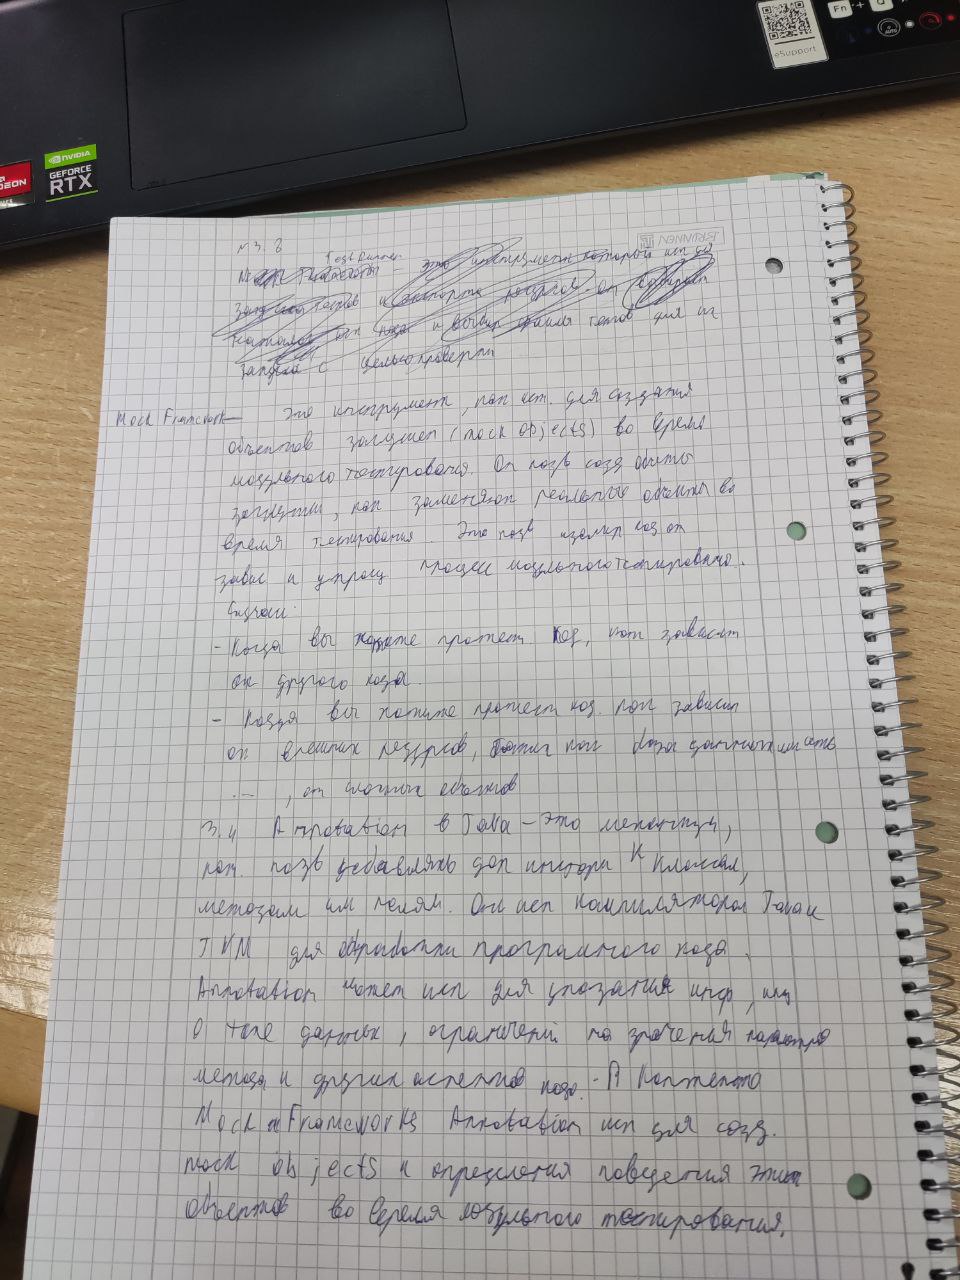 eSupport
Fn
AUTO
NVIDIA
GEFORCE
RTX
BRUNNEN
N 3. 2
Test Runner
это инструмент который исп для
тестов и
и файлы тестов для их
запуска с целью проверки
Mock Framework — Это инструмент, кот ист. для создания
объектов заглушек (mock objects) во время
модульного тестирования. Он позв созд объекты
заглушки, кот заменяют реальные объекты во
время тестирования. Это позв изолир код от
завис и упрощ процесс модульного тестирования.
Случаи:
- Когда вы хотите протест код, кот зависит
от другого кода.
- Когда вы хотите протест код. кот зависит
от внешних ресурсов, таких как база данных или сеть
..., от сложных объектов
3.4 Annotation в Java – это механизм,
кот. позв добавлять доп информ к классам,
методам или полям. Они исп компилятором Java и
JVM для обработки програмного кода.
Annotation может исп для указания инф, или
о типе данных, ограничений на значения параметров
метода и других аспектов кода. - В контексте
Mock Frameworks Annotation исп для созд.
mock objects и определения поведения этих
объектов во время модульного тестирования.